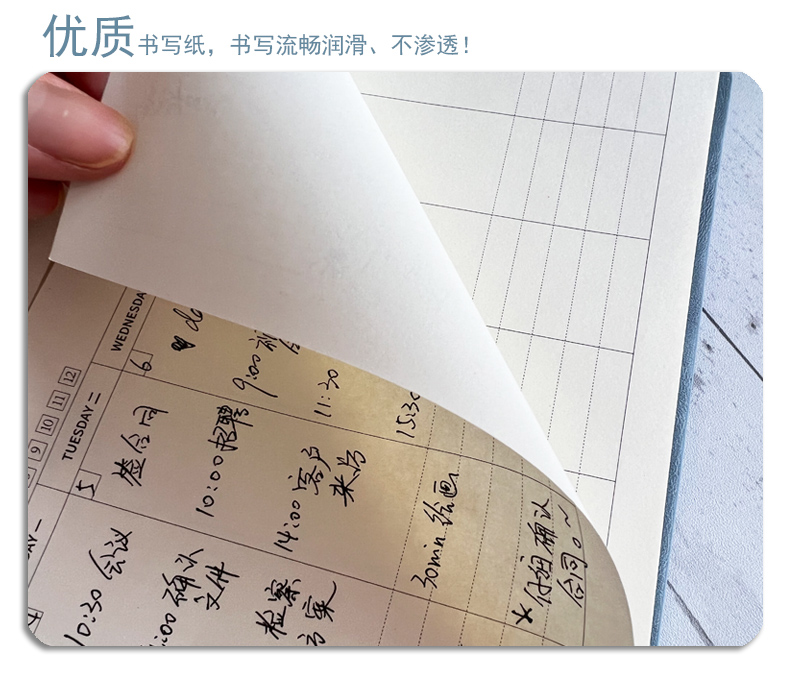 优质书写纸，书写流畅润滑、不渗透！
WEDNESDA
6
9:00
11:30
15:30
9 10 11 12
TUESDAY 二
5
签合同
10:00 招聘
14:00 客户
来访
30min 绘画
10:30 会议
:00 确认
文件
检察
方案
* 付妞 确认
合同。~